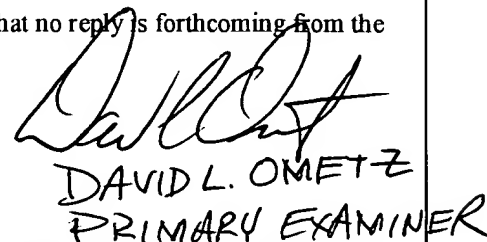 hat no reply is forthcoming from the
David L Ometz
DAVID L. OMETZ
PRIMARY EXAMINER